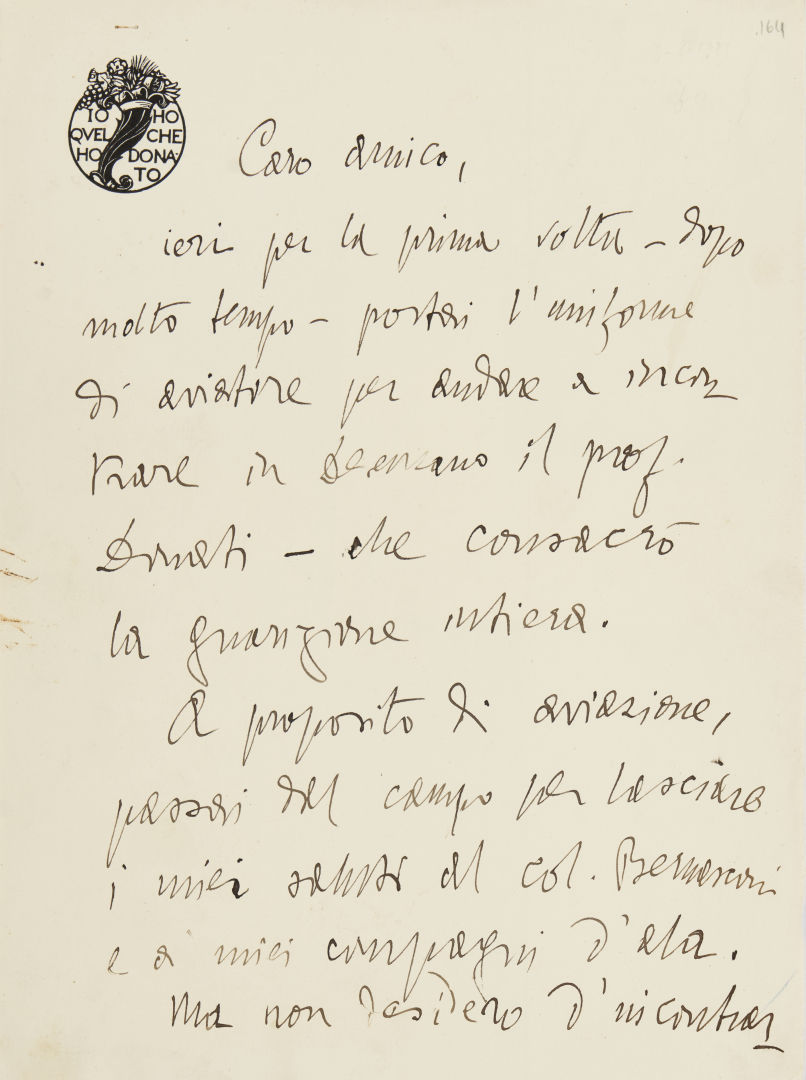 .164
IO HO
QVEL CHE
HO DONA
TO
Caro amico,
ieri per la prima volta – dopo
molto tempo – portai l'uniforme
di aviatore per andare a incon
trare in Desenzano il prof.
Donati – che consacrò
la guarigione intiera.
A proposito di aviazione,
passai dal campo per lasciare
i miei saluti al col. Bernasconi
e a' miei compagni d'ala.
Ma non desidero d'incontrar